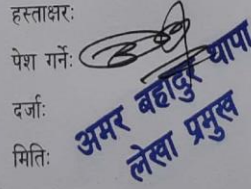 हस्ताक्षर:
पेश गर्ने:
दर्जा:
मिति:
अमर बहादुर थापा
लेखा प्रमुख